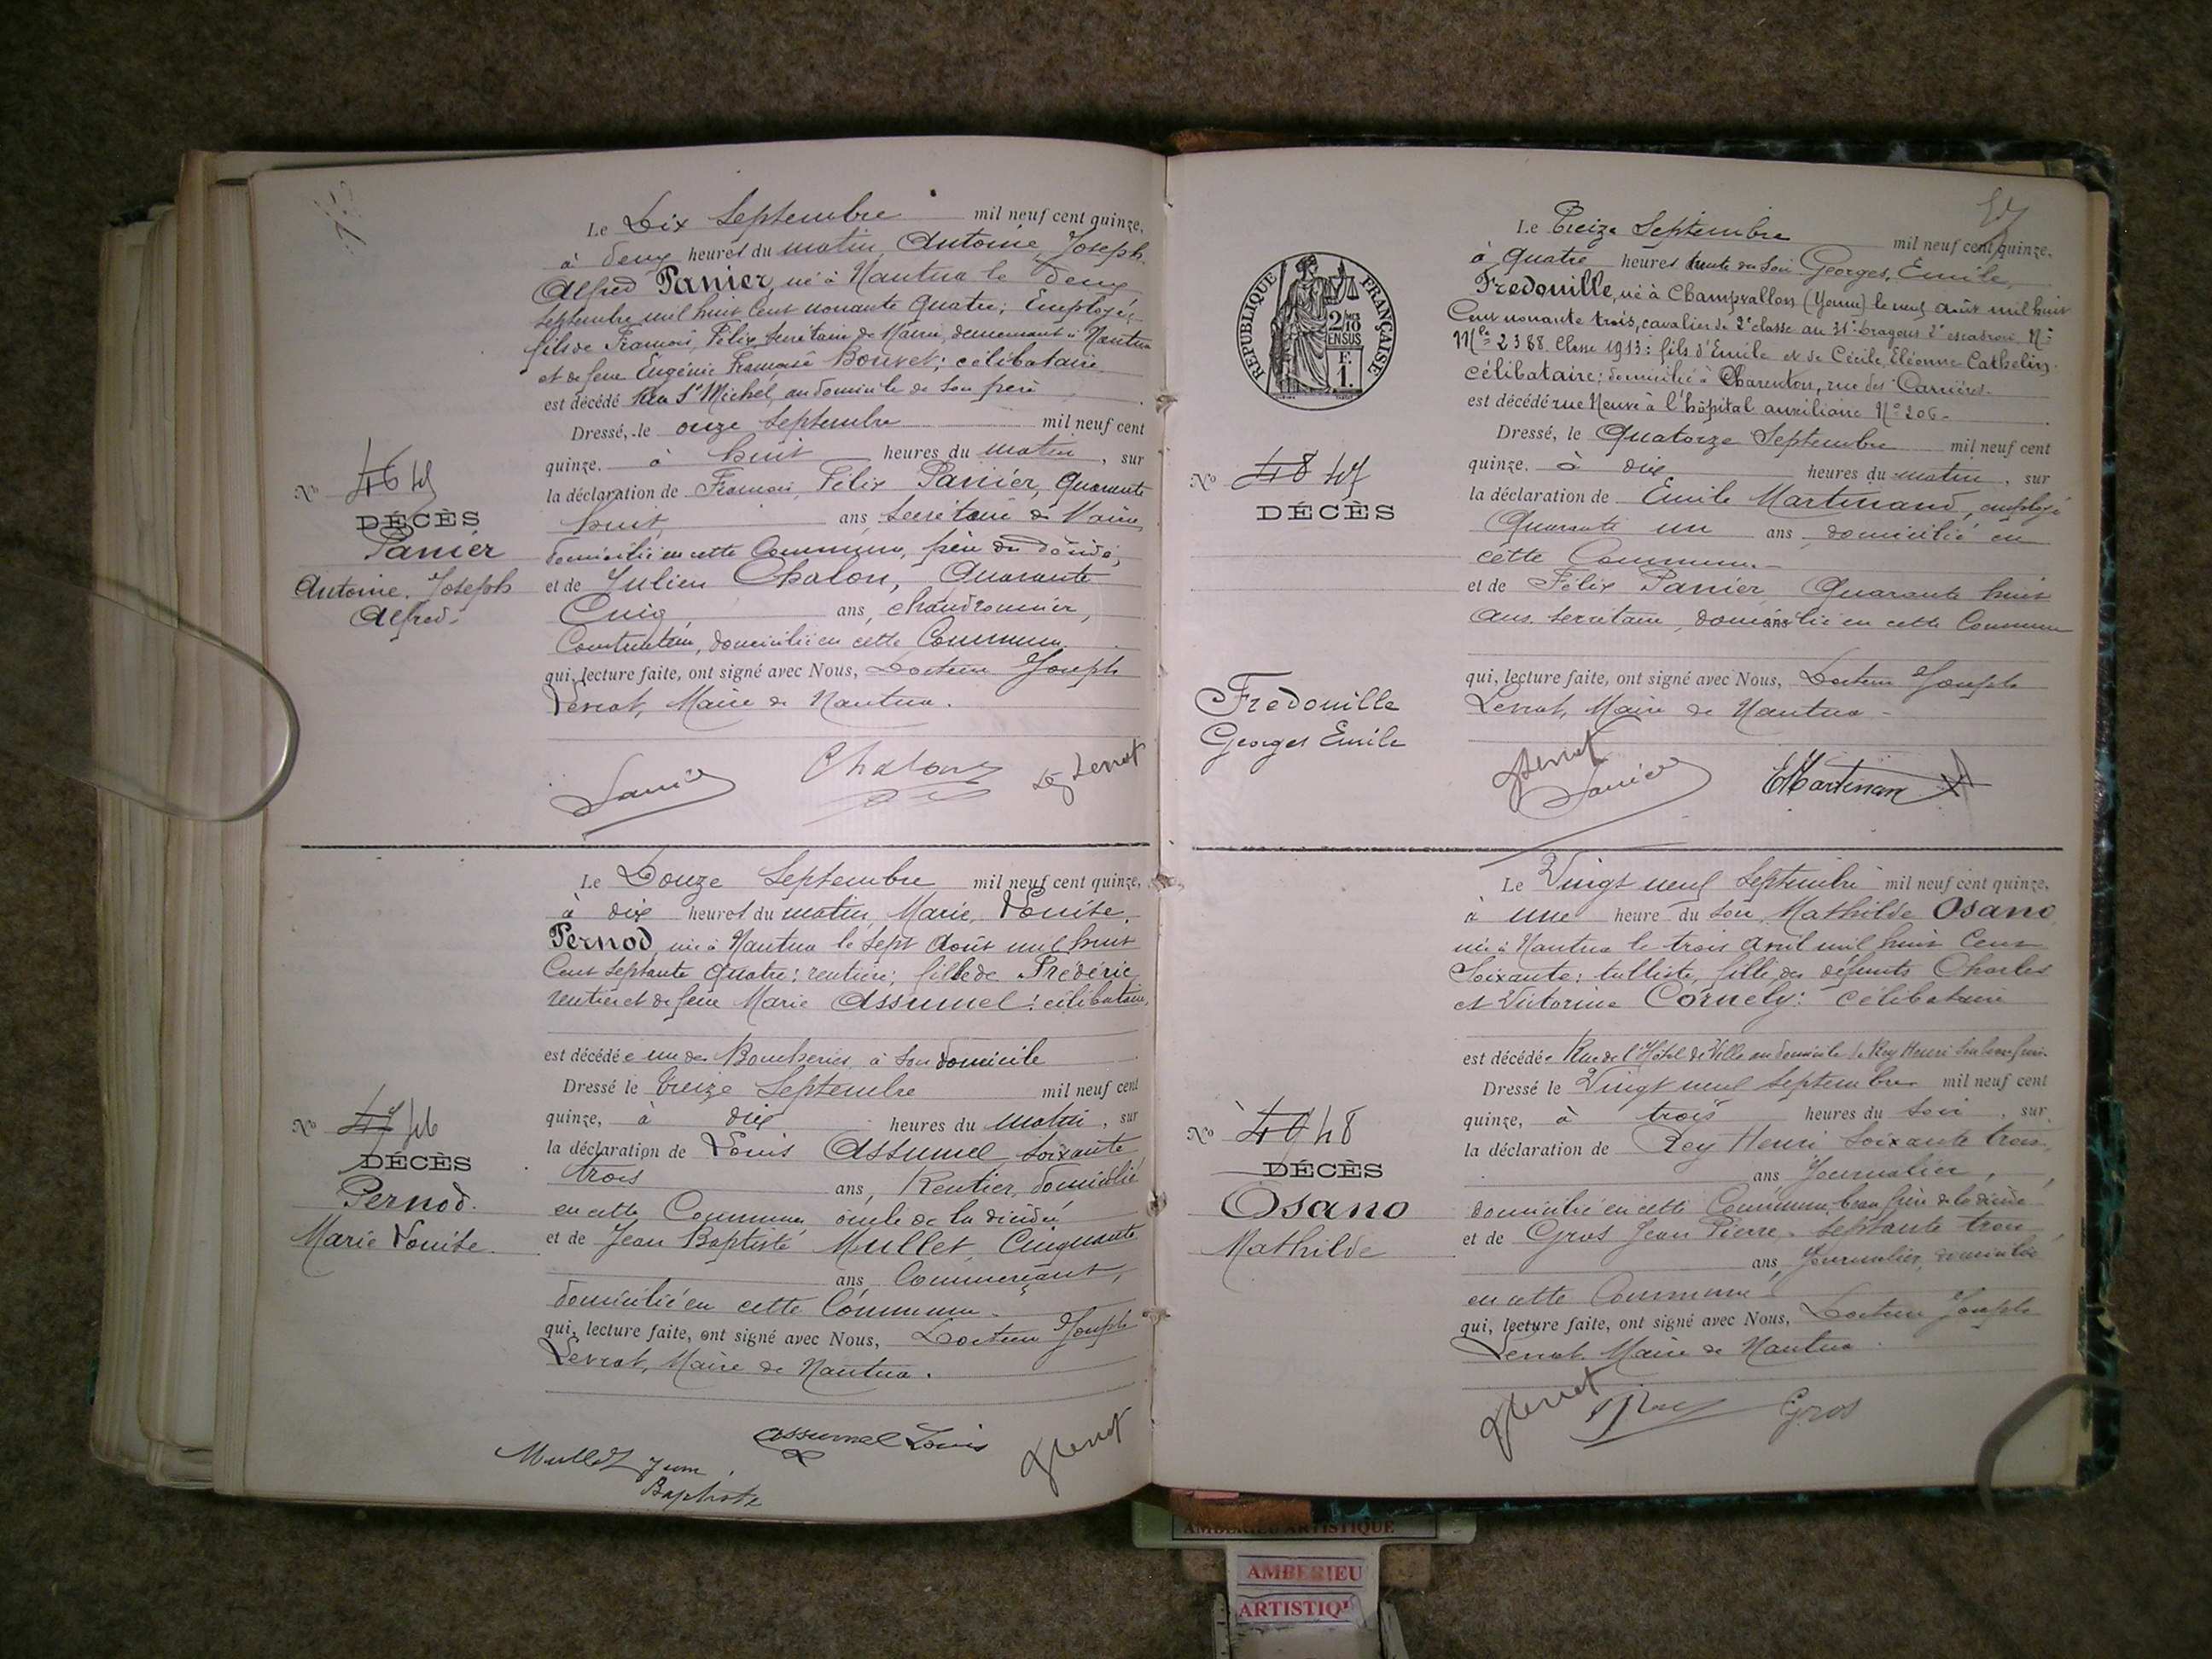 Le Dix Septembre mil neuf cent quinze,
à deux heures du matin, Antoine, Joseph
Alfred Panier, né à Nantua le deux
septembre mil huit cent nonante quatre; Employé;
fils de François, Félix, secrétaire de Mairie, demeurant à Nantua
et de feue Eugénie Françoise Bouvet; célibataire
est décédé rue St Michel, au domicile de son père
Dressé, le onze Septembre mil neuf cent
quinze, à huit heures du matin, sur
la déclaration de François, Félix Panier, Quarante
huit ans secrétaire de Mairie,
domicilié en cette Commune, père du décédé;
et de Julien Chalon, Quarante
Cinq ans, chaudronnier,
domicilié en cette Commune
qui, lecture faite, ont signé avec Nous, Docteur Joseph
Levrat, Maire de Nantua.
No 46 45
DÉCÈS
Panier
Antoine, Joseph
Alfred.
Panier Chalon Levrat
Le Douze Septembre mil neuf cent quinze,
à dix heures du matin, Marie, Louise,
Pernod, née à Nantua le sept Août mil huit
Cent septante quatre; rentière; fille de Frédéric,
rentier et de feue Marie Assumel; célibataire,
est décédée rue des Boucheries, à son domicile
Dressé le treize Septembre mil neuf cent
quinze, à dix heures du matin, sur
la déclaration de Louis Assumel soixante
trois ans, Rentier, domicilié
en cette Commune oncle de la décédée,
et de Jean Baptiste Mullet, Cinquante
ans Commerçant,
domicilié en cette Commune.
qui, lecture faite, ont signé avec Nous, Docteur Joseph
Levrat, Maire de Nantua.
No 47 46
DÉCÈS
Pernod.
Marie Louise.
Assumel Louis
Mullet Jean
Baptiste
Levrat
RÉPUBLIQUE FRANÇAISE
2/10
EN SUS
F.
1.
Le Treize Septembre mil neuf cent quinze.
à Quatre heures trente du soir Georges, Emile,
Fredouille, né à Champvallon (Yonne) le neuf Août mil huit
Cent nonante trois, cavalier de 2e classe au 31e Dragons 2e escadron, No
Mle 2388 Classe 1913: fils d'Emile et de Cécile, Eléonne Cathelin,
célibataire; domicilié à Charenton, rue des Carrières.
est décédé rue Neuve à l'hôpital auxiliaire No 206.
Dressé, le Quatorze Septembre mil neuf cent
quinze, à dix heures du matin, sur
la déclaration de Emile Martinand, employé
Quarante un ans, domicilié en
cette Commune
et de Félix Panier, Quarante huit
ans secrétaire, domicilié en cette Commune
ans
qui, lecture faite, ont signé avec Nous, Docteur Joseph
Levrat, Maire de Nantua
No 48 47
DÉCÈS
Fredouille
Georges Emile
Levrat
Panier
EMartinand
Le Vingt neuf Septembre mil neuf cent quinze,
à une heure du soir, Mathilde Osano
née à Nantua le trois avril mil huit Cent
Soixante: tulliste, fille des défunts Charles
et Victorine Cornely: célibataire
est décédée Rue de l'Hôtel de Ville au domicile de Rey Henri son beau frère.
Dressé le Vingt neuf Septembre mil neuf cent
quinze, à trois heures du soir, sur
la déclaration de Rey Henri Soixante trois
ans Journalier,
domicilié en cette Commune, beau frère de la décédée
et de Gros Jean Pierre, septante trois
ans, Journalier, domicilié
en cette Commune
qui, lecture faite, ont signé avec Nous, Docteur Joseph
Levrat, Maire de Nantua.
No 49 48
DÉCÈS
Osano
Mathilde
Levrat Rey Gros
AMBERIEU ARTISTIQUE
AMBERIEU
ARTISTIQ